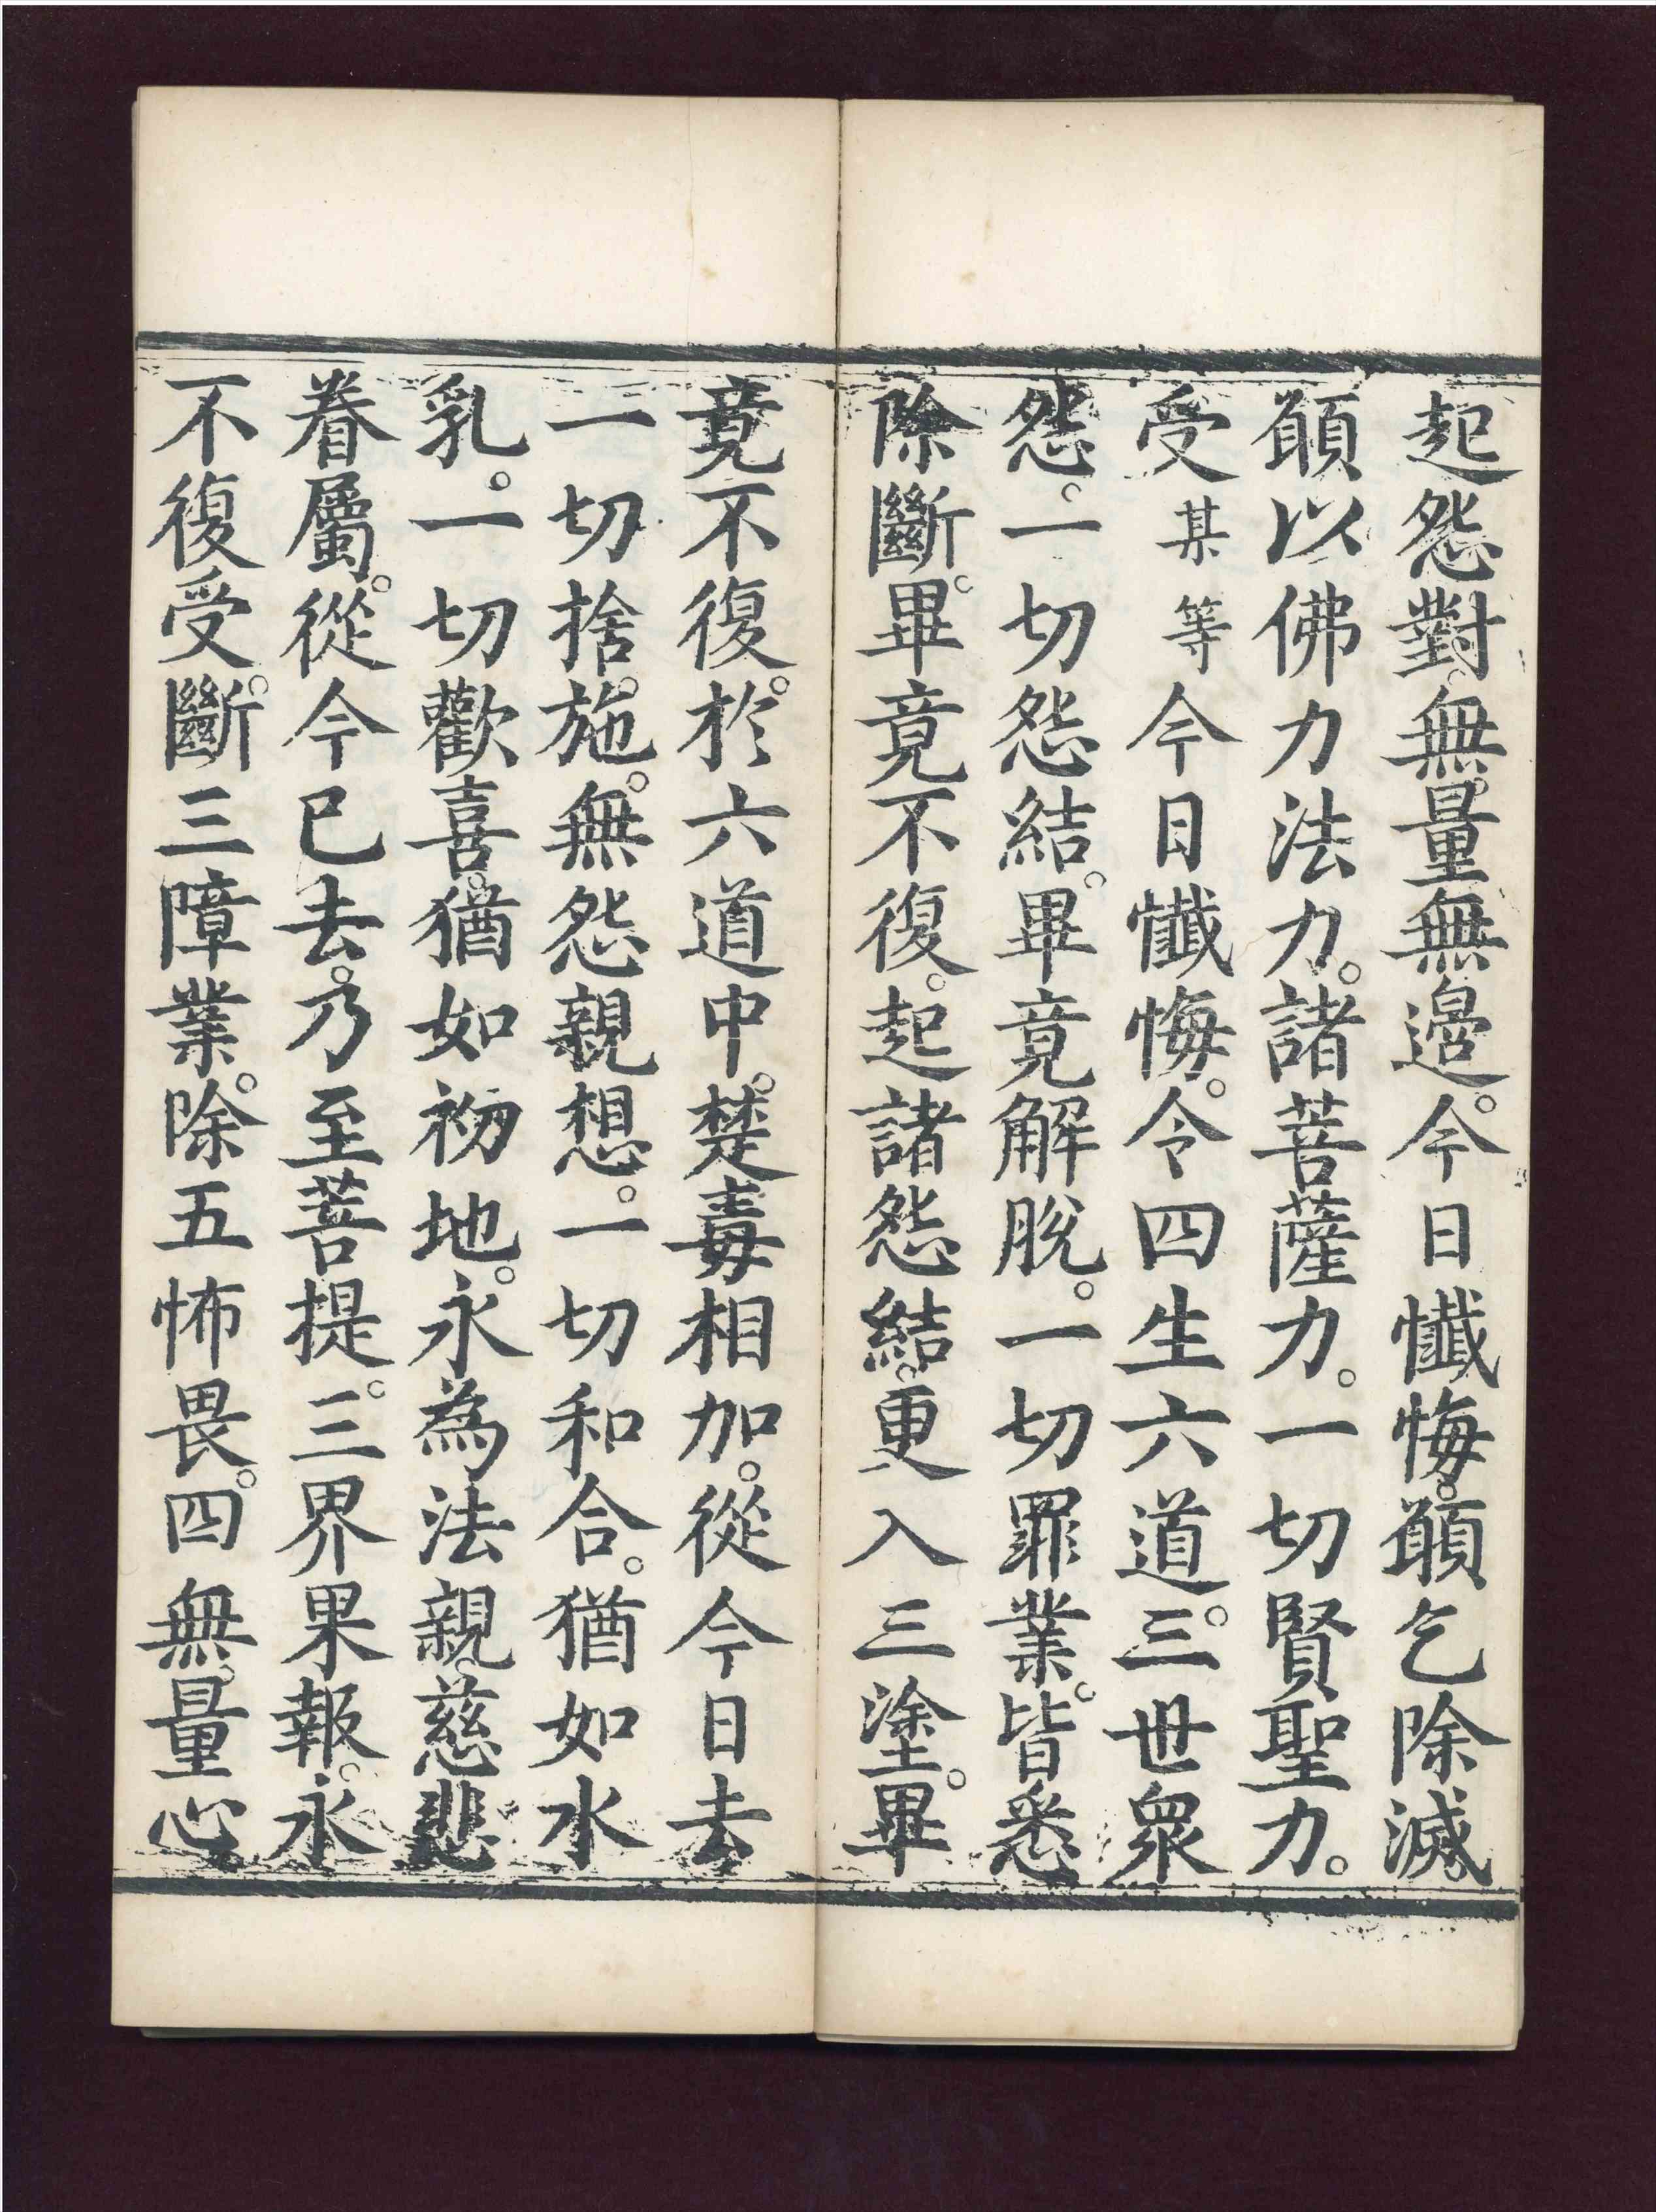 起怨對。無量無邊。今日懺悔。願乞除滅。
願以佛力法力。諸菩薩力。一切賢聖力。
受某等今日懺悔。令四生六道。三世眾
怨。一切怨結。畢竟解脫。一切罪業。皆悉
除斷。畢竟不復。起諸怨結。更入三塗。畢
竟不復。於六道中。楚毒相加。從今日去
一切捨施。無怨親想。一切和合。猶如水
乳。一切歡喜。猶如初地。永為法親。慈悲
眷屬。從今已去。乃至菩提。三界果報。永
不復受。斷三障業。除五怖畏。四無量心